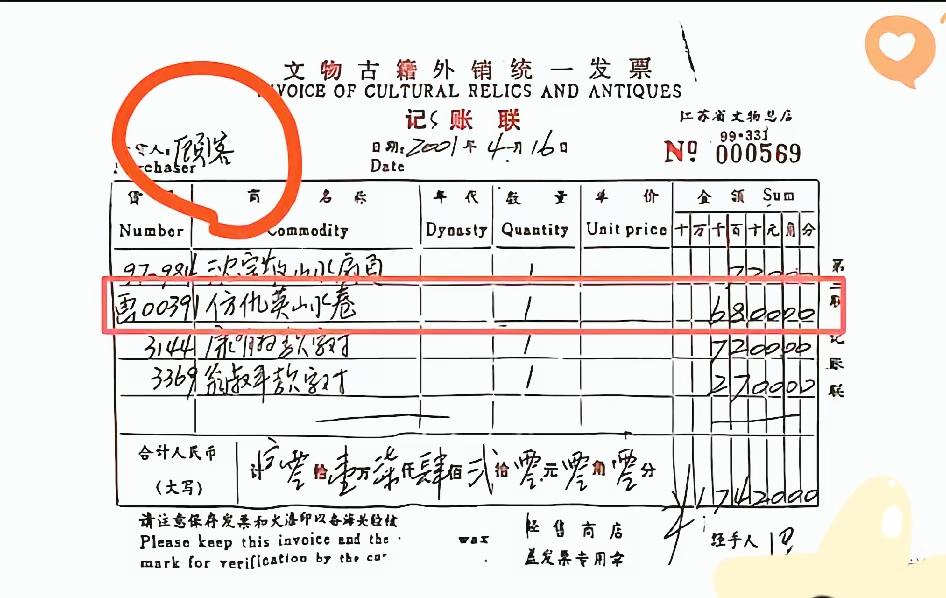 文物古籍外销统一发票
INVOICE OF CULTURAL RELICS AND ANTIQUES
记账联
江苏省文物总店
99·331
购货人: 顾客
Purchaser
日期: 2001年4月16日
Date
No 000569
货号 商品名称 年代 数量 单价 金额 Sum
Number Commodity Dynasty Quantity Unit price 十万千百十元角分
97-984 山水扇页 1
0039 仿仇英山水卷 1 680000
3144 款字对 1 720000
3369 翁叔平款字对 1 270000
第二联 记账联
合计人民币
(大写)
零拾壹万柒仟肆佰贰拾零元零角零分 ¥1742000
请注意保存发票和火漆印以备海关检核
Please keep this invoice and the wax
mark for verification by the
经售商店
盖发票专用章
经手人